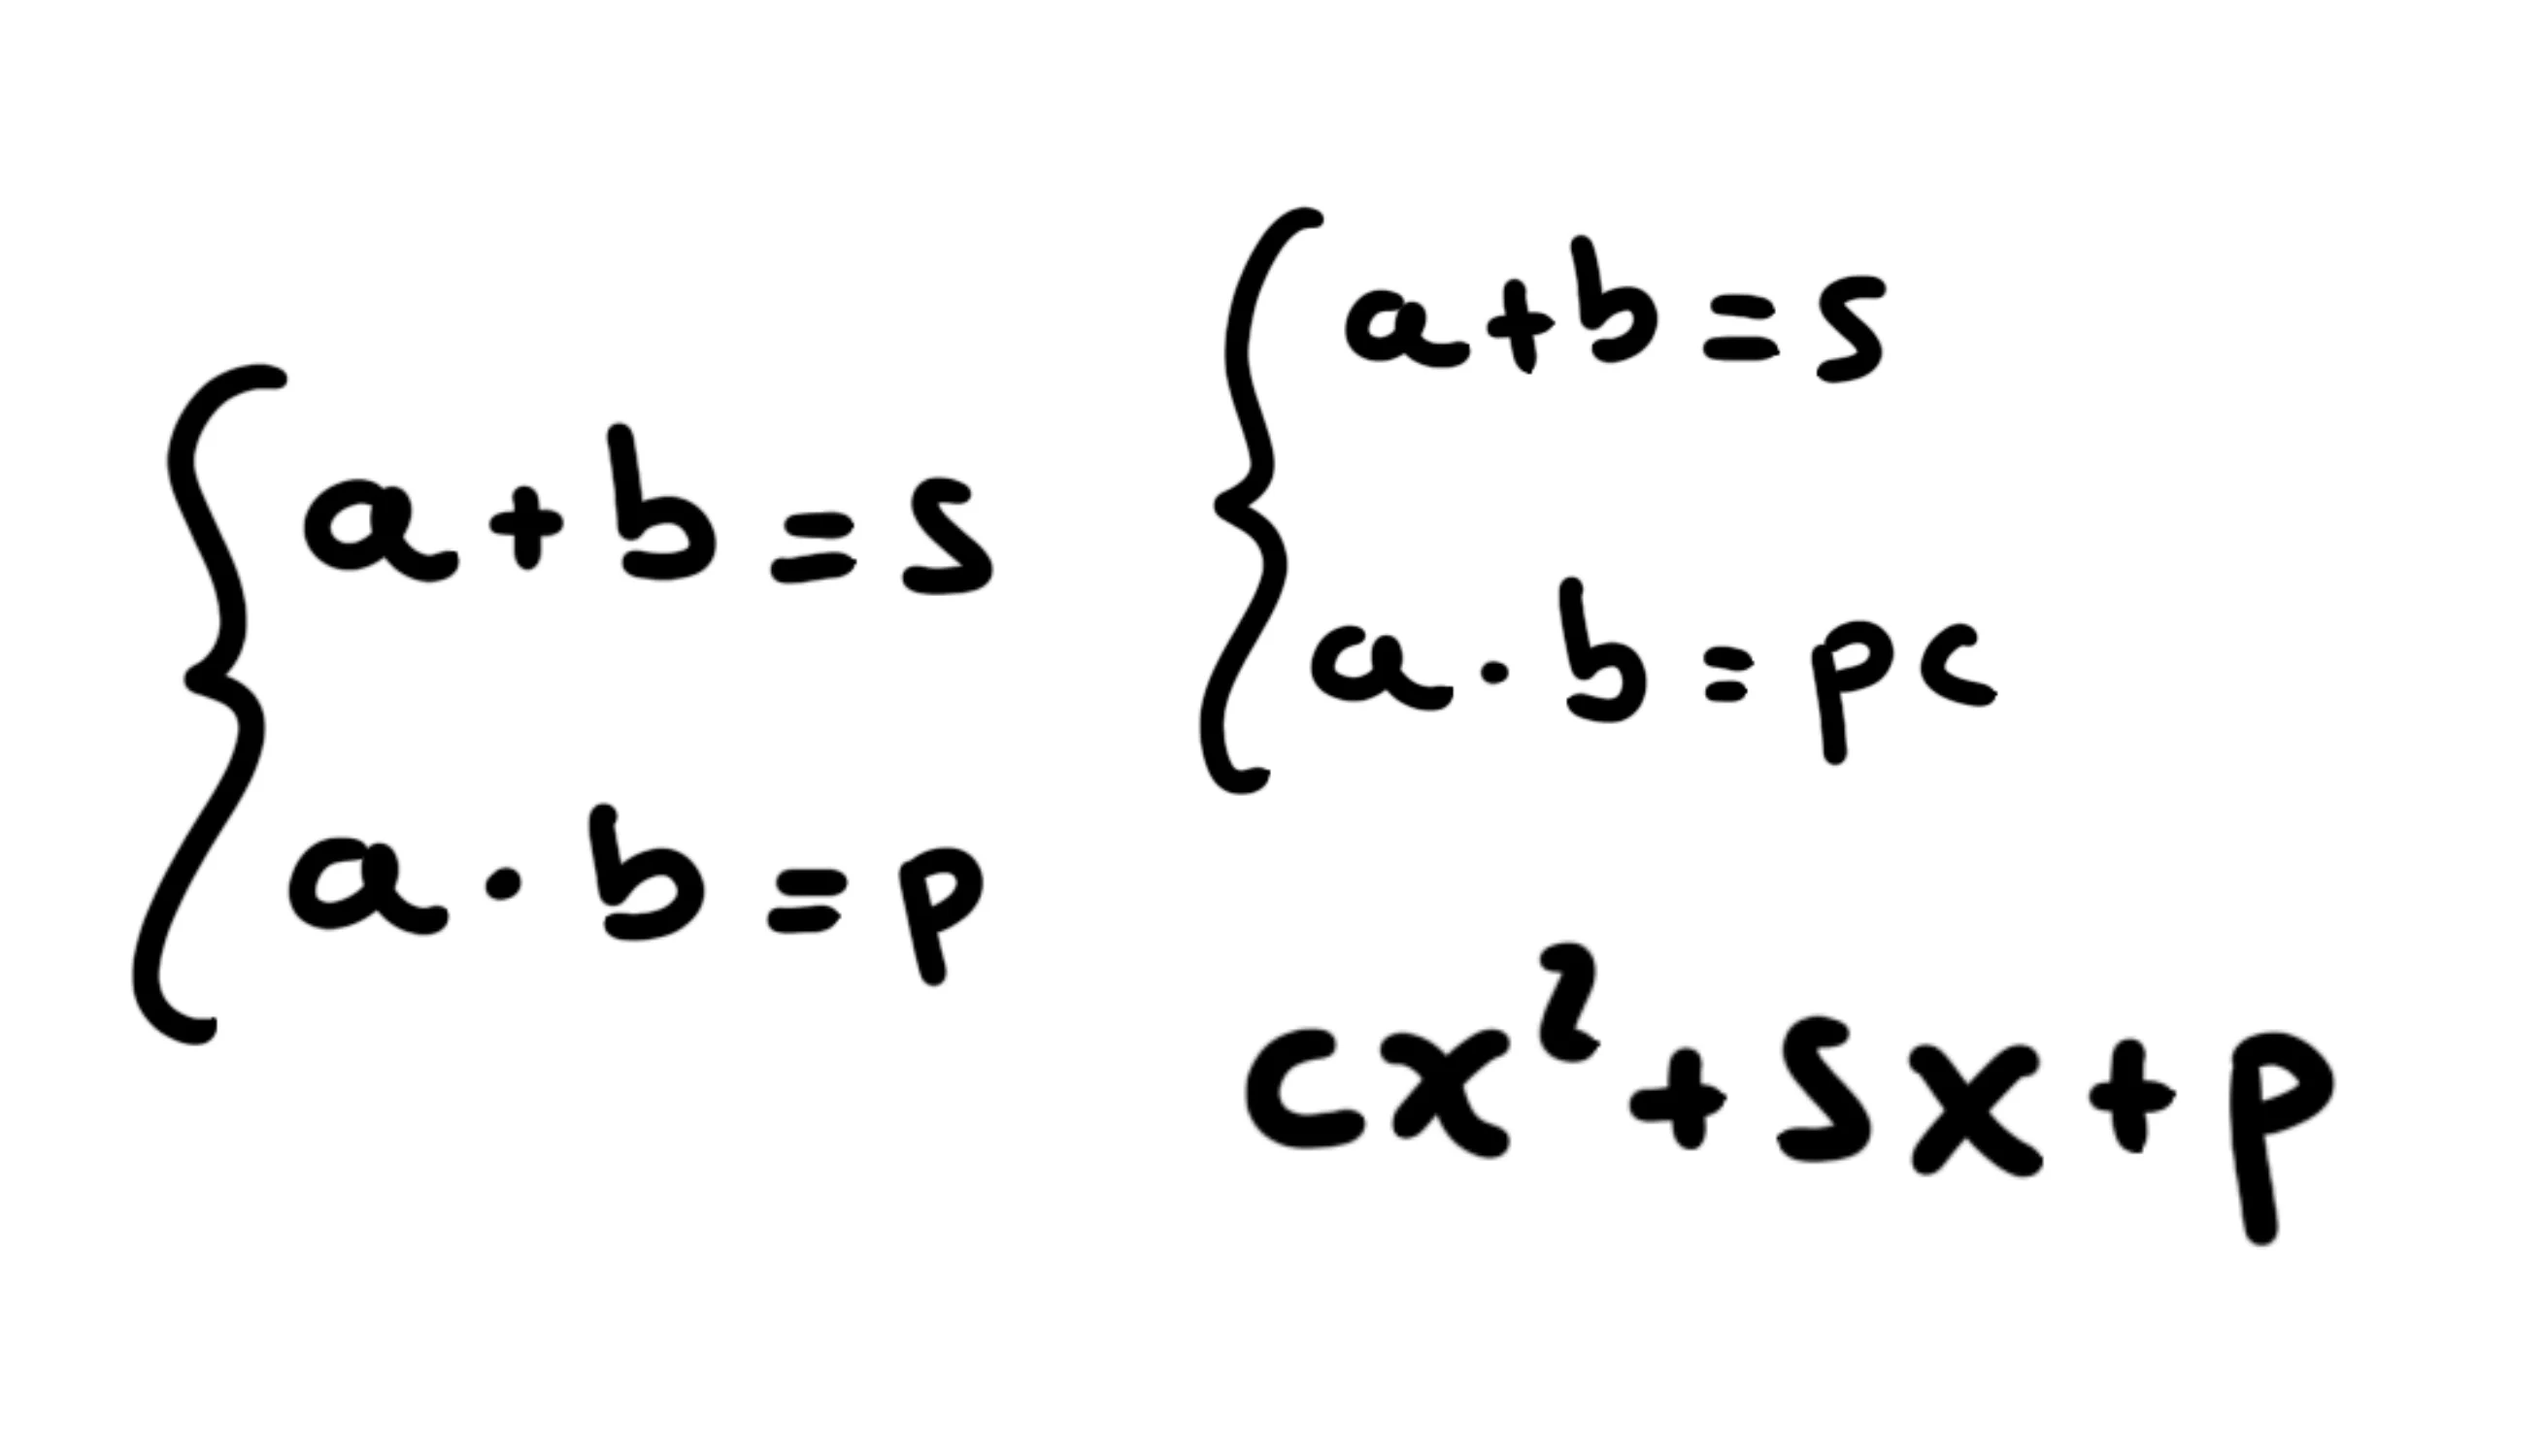 a + b = s
a · b = p
a + b = s
a · b = pc
cx² + sx + p